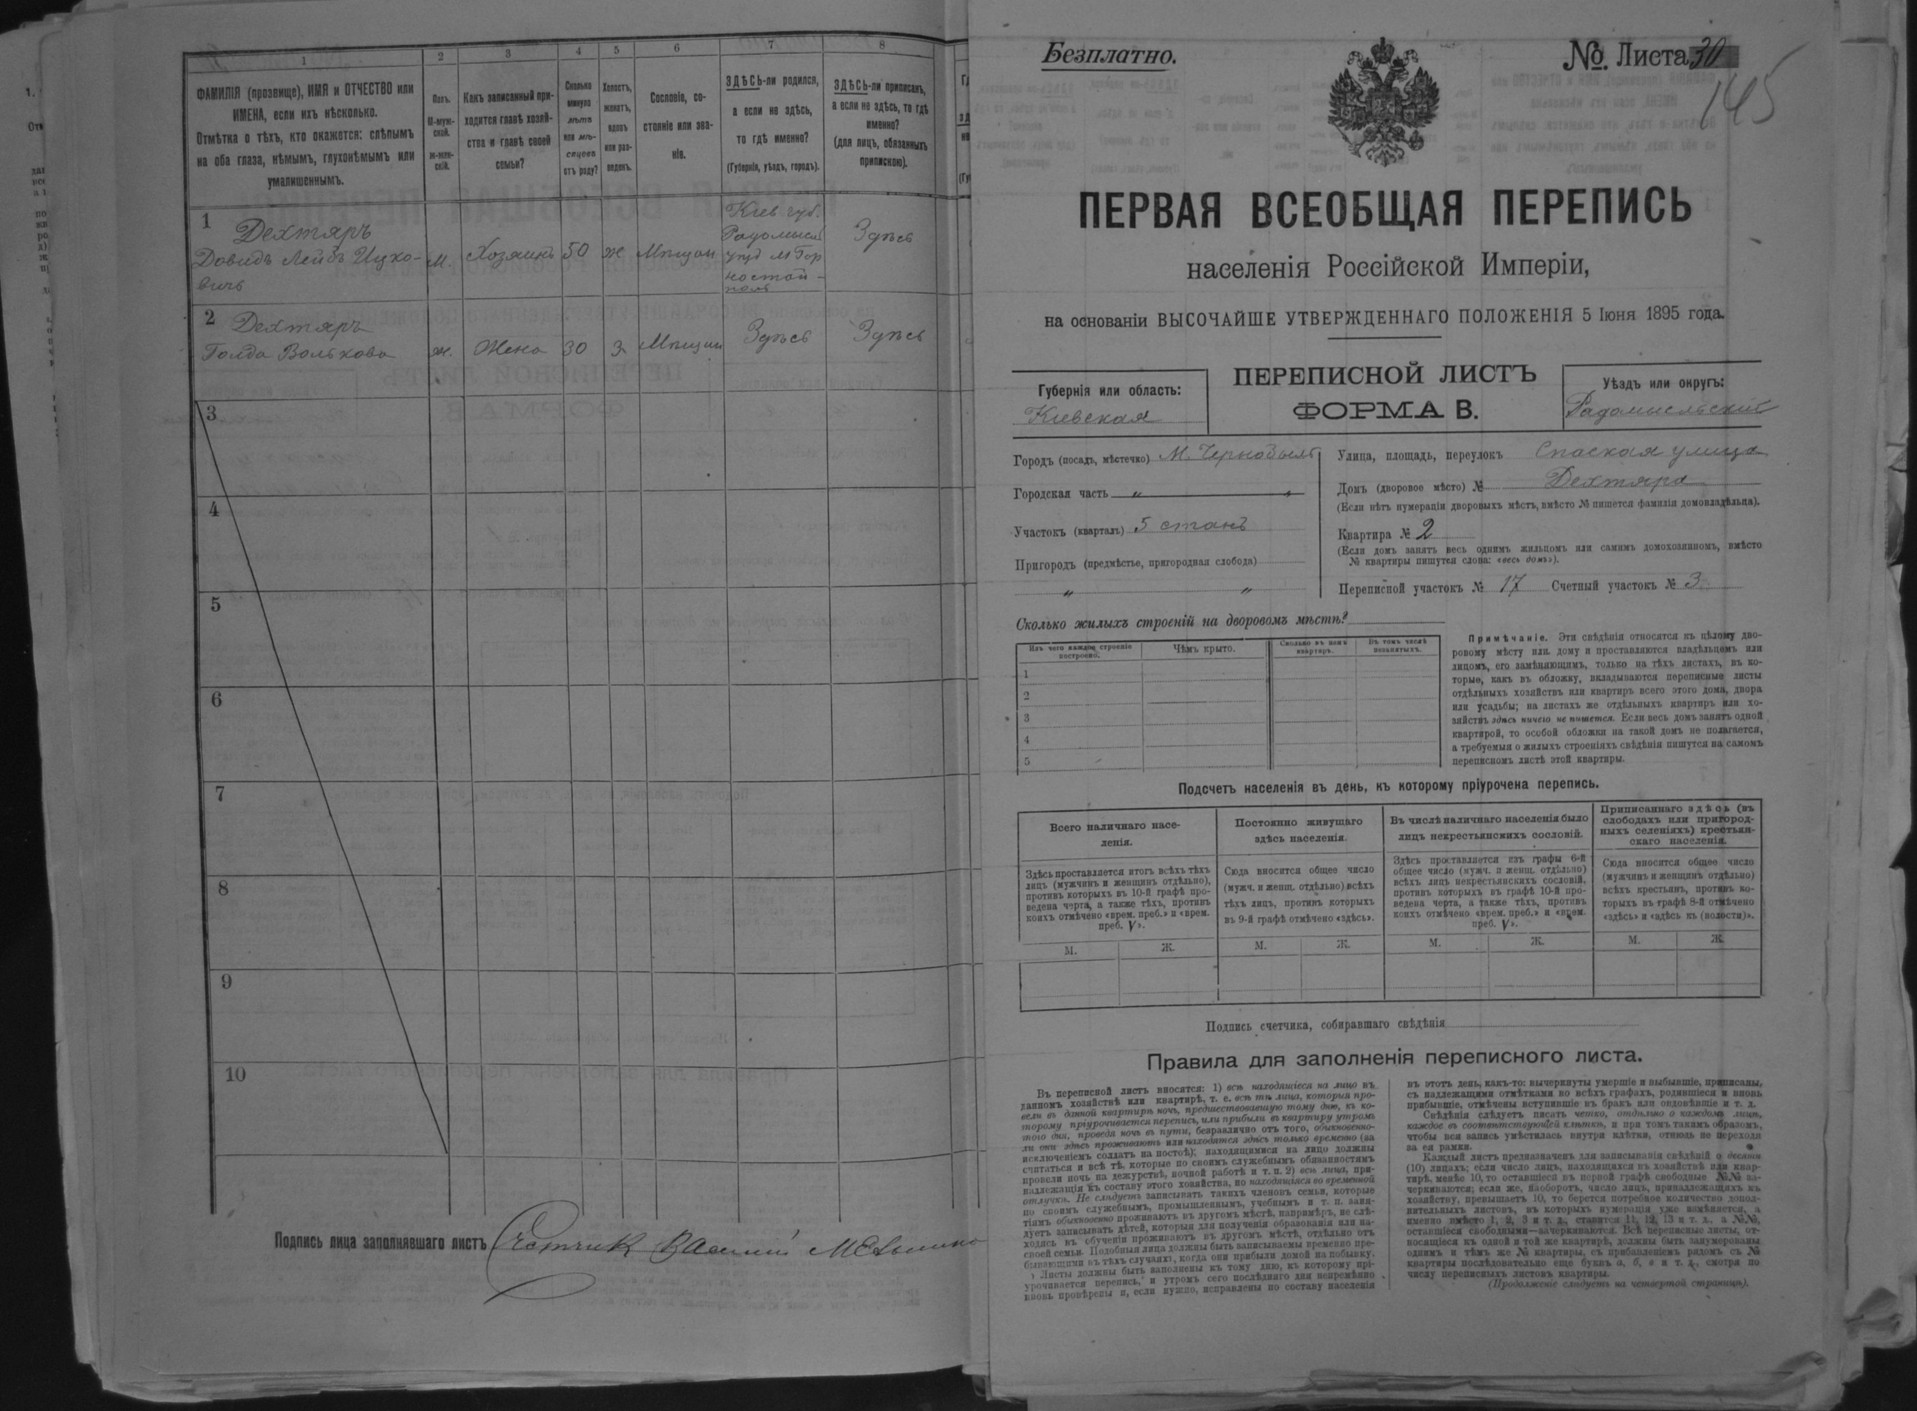 1
2
3
4
5
6
7
8
ФАМИЛІЯ (прозвище), ИМЯ и ОТЧЕСТВО или
ИМЕНА, если ихъ нѣсколько.
Отмѣтка о тѣхъ, кто окажется: слѣпымъ
на оба глаза, нѣмымъ, глухонѣмымъ или
умалишеннымъ.
Полъ.
М-муж-
ской.
ж-жен-
скій.
Какъ записанный при-
ходится главѣ хозяй-
ства и главѣ своей
семьи?
Сколько
минуло
лѣтъ
или мѣ-
сяцевъ
отъ роду?
Холостъ,
женатъ,
вдовъ
или раз-
веденъ.
Сословіе, со-
стояніе или зва-
ніе.
ЗДѢСЬ-ли родился,
а если не здѣсь,
то гдѣ именно?
(Губернія, уѣздъ, городъ).
ЗДѢСЬ-ли приписанъ,
а если не здѣсь, то гдѣ
именно?
(для лицъ, обязанныхъ
припискою).
1
Дехтяръ
Довидъ Лейбъ Ицко-
вичъ
м.
Хозяинъ
50
ж
Мѣщан
Кіев губ.
Радомысл
уѣзд м Гор
ностай-
поль
Здѣсь
2
Дехтяръ
Голда Волькова
ж.
Жена
30
з
Мѣщан
Здѣсь
Здѣсь
3
4
5
6
7
8
9
10
Подпись лица заполнявшаго листъ Счетчикъ Василий
Безплатно.
№ Листа 30
145
ПЕРВАЯ ВСЕОБЩАЯ ПЕРЕПИСЬ
населенія Россійской Имперіи,
на основаніи ВЫСОЧАЙШЕ УТВЕРЖДЕННАГО ПОЛОЖЕНІЯ 5 Іюня 1895 года.
Губернія или область:
Кіевская
ПЕРЕПИСНОЙ ЛИСТЪ
ФОРМА В.
Уѣздъ или округъ:
Радомысльскій
Городъ (посадъ, мѣстечко) М. Чернобыль
Городская часть „ „
Участокъ (кварталъ) 5 станъ
Пригородъ (предмѣстье, пригородная слобода)
„ „
Улица, площадь, переулокъ Спаская улица
Домъ (дворовое мѣсто) № Дехтяра
(Если нѣтъ нумераціи дворовыхъ мѣстъ, вмѣсто № пишется фамилія домовладѣльца).
Квартира № 2
(Если домъ занятъ весь однимъ жильцомъ или самимъ домохозяиномъ, вмѣсто
№ квартиры пишутся слова: «весь домъ»).
Переписной участокъ № 17 Счетный участокъ № 3
Сколько жилыхъ строеній на дворовомъ мѣстѣ?
Изъ чего каждое строеніе
построено.
Чѣмъ крыто.
Сколько въ немъ
квартиръ.
Въ томъ числѣ
незанятыхъ.
1
2
3
4
5
Примѣчаніе. Эти свѣдѣнія относятся къ цѣлому дво-
ровому мѣсту или дому и проставляются владѣльцемъ или
лицомъ, его замѣняющимъ, только на тѣхъ листахъ, въ ко-
торые, какъ въ обложку, вкладываются переписные листы
отдѣльныхъ хозяйствъ или квартиръ всего этого дома, двора
или усадьбы; на листахъ же отдѣльныхъ квартиръ или хо-
зяйствъ здѣсь ничего не пишется. Если весь домъ занятъ одной
квартирой, то особой обложки на такой домъ не полагается,
а требуемыя о жилыхъ строеніяхъ свѣдѣнія пишутся на самомъ
переписномъ листѣ этой квартиры.
Подсчетъ населенія въ день, къ которому пріурочена перепись.
Всего наличнаго насе-
ленія.
Здѣсь проставляется итогъ всѣхъ тѣхъ
лицъ (мужчинъ и женщинъ отдѣльно),
противъ которыхъ въ 10-й графѣ про-
ведена черта, а также тѣхъ, противъ
коихъ отмѣчено «врем. преб.» и «врем.
преб. V».
М.
Ж.
Постоянно живущаго
здѣсь населенія.
Сюда вносится общее число
(мужч. и женщ. отдѣльно) всѣхъ
тѣхъ лицъ, противъ которыхъ
въ 9-й графѣ отмѣчено «здѣсь».
М.
Ж.
Въ числѣ наличнаго населенія было
лицъ некрестьянскихъ сословій.
Здѣсь проставляется изъ графы 6-й
общее число (мужч. и женщ. отдѣльно)
всѣхъ лицъ некрестьянскихъ сословій,
противъ которыхъ въ графѣ 10-й про-
ведена черта, а также тѣхъ, противъ
коихъ отмѣчено «врем. преб.» и «врем.
преб. V».
М.
Ж.
Приписаннаго здѣсь (въ
слободахъ или пригород-
ныхъ селеніяхъ) крестьян-
скаго населенія.
Сюда вносится общее число
(мужчинъ и женщинъ отдѣльно)
всѣхъ крестьянъ, противъ ко-
торыхъ въ графѣ 8-й отмѣчено
«здѣсь» и «здѣсь къ (волости)».
М.
Ж.
Подпись счетчика, собиравшаго свѣдѣнія
Правила для заполненія переписного листа.
Въ переписной листъ вносятся: 1) всѣ находящіеся на лицо въ
данномъ хозяйствѣ или квартирѣ, т. е. всѣ тѣ лица, которыя про-
вели въ данной квартирѣ ночь, предшествовавшую тому дню, къ ко-
торому пріурочивается перепись, или прибыли въ квартиру утромъ
этого дня, проведя ночь въ пути, безразлично отъ того, обыкновенно-
ли они здѣсь проживаютъ или находятся здѣсь только временно (за
исключеніемъ солдатъ на постоѣ); находящимися на лицо должны
считаться и всѣ тѣ, которые по своимъ служебнымъ обязанностямъ
провели ночь на дежурствѣ, ночной работѣ и т. п. 2) всѣ лица, при-
надлежащія къ составу этого хозяйства, но находящіяся во временной
отлучкѣ. Не слѣдуетъ записывать такихъ членовъ семьи, которые
по своимъ служебнымъ, промышленнымъ, учебнымъ и т. п. заня-
тіямъ обыкновенно проживаютъ въ другомъ мѣстѣ, напримѣръ, не слѣ-
дуетъ записывать дѣтей, которыя для полученія образованія или на-
ходясь въ обученіи проживаютъ въ другомъ мѣстѣ, отдѣльно отъ
своей семьи. Подобныя лица должны быть записываемы временно пре-
бывающими въ тѣхъ случаяхъ, когда они прибыли домой на побывку.
Листы должны быть заполнены къ тому дню, къ которому прі-
урочивается перепись, и утромъ сего послѣдняго дня непремѣнно
вновь провѣрены и, если нужно, исправлены по составу населенія
въ этотъ день, какъ-то: вычеркнуты умершіе и выбывшіе, приписаны,
съ надлежащими отмѣтками во всѣхъ графахъ, родившіеся и вновь
прибывшіе, отмѣчены вступившіе въ бракъ или овдовѣвшіе и т. д.
Свѣдѣнія слѣдуетъ писать четко, отдѣльно о каждомъ лицѣ,
каждое въ соотвѣтствующей клѣткѣ, и при томъ такимъ образомъ,
чтобы вся запись умѣстилась внутри клѣтки, отнюдь не переходя
за ея рамки.
Каждый листъ предназначенъ для записыванія свѣдѣній о десяти
(10) лицахъ; если число лицъ, находящихся въ хозяйствѣ или квар-
тирѣ, менѣе 10, то оставшіеся въ первой графѣ свободные №№ за-
черкиваются; если же, наоборотъ, число лицъ, принадлежащихъ къ
хозяйству, превышаетъ 10, то берется потребное количество допол-
нительныхъ листовъ, въ которыхъ нумерація уже измѣняется, а
именно вмѣсто 1, 2, 3 и т. д., ставится 11, 12, 13 и т. д., а №№,
оставшіеся свободными—зачеркиваются. Всѣ переписные листы, от-
носящіеся къ одной и той же квартирѣ, должны быть занумерованы
однимъ и тѣмъ же № квартиры, съ прибавленіемъ рядомъ съ №
квартиры послѣдовательно еще буквъ а, б, в и т. д., смотря по
числу переписныхъ листовъ квартиры.
(Продолженіе слѣдуетъ на четвертой страницѣ).